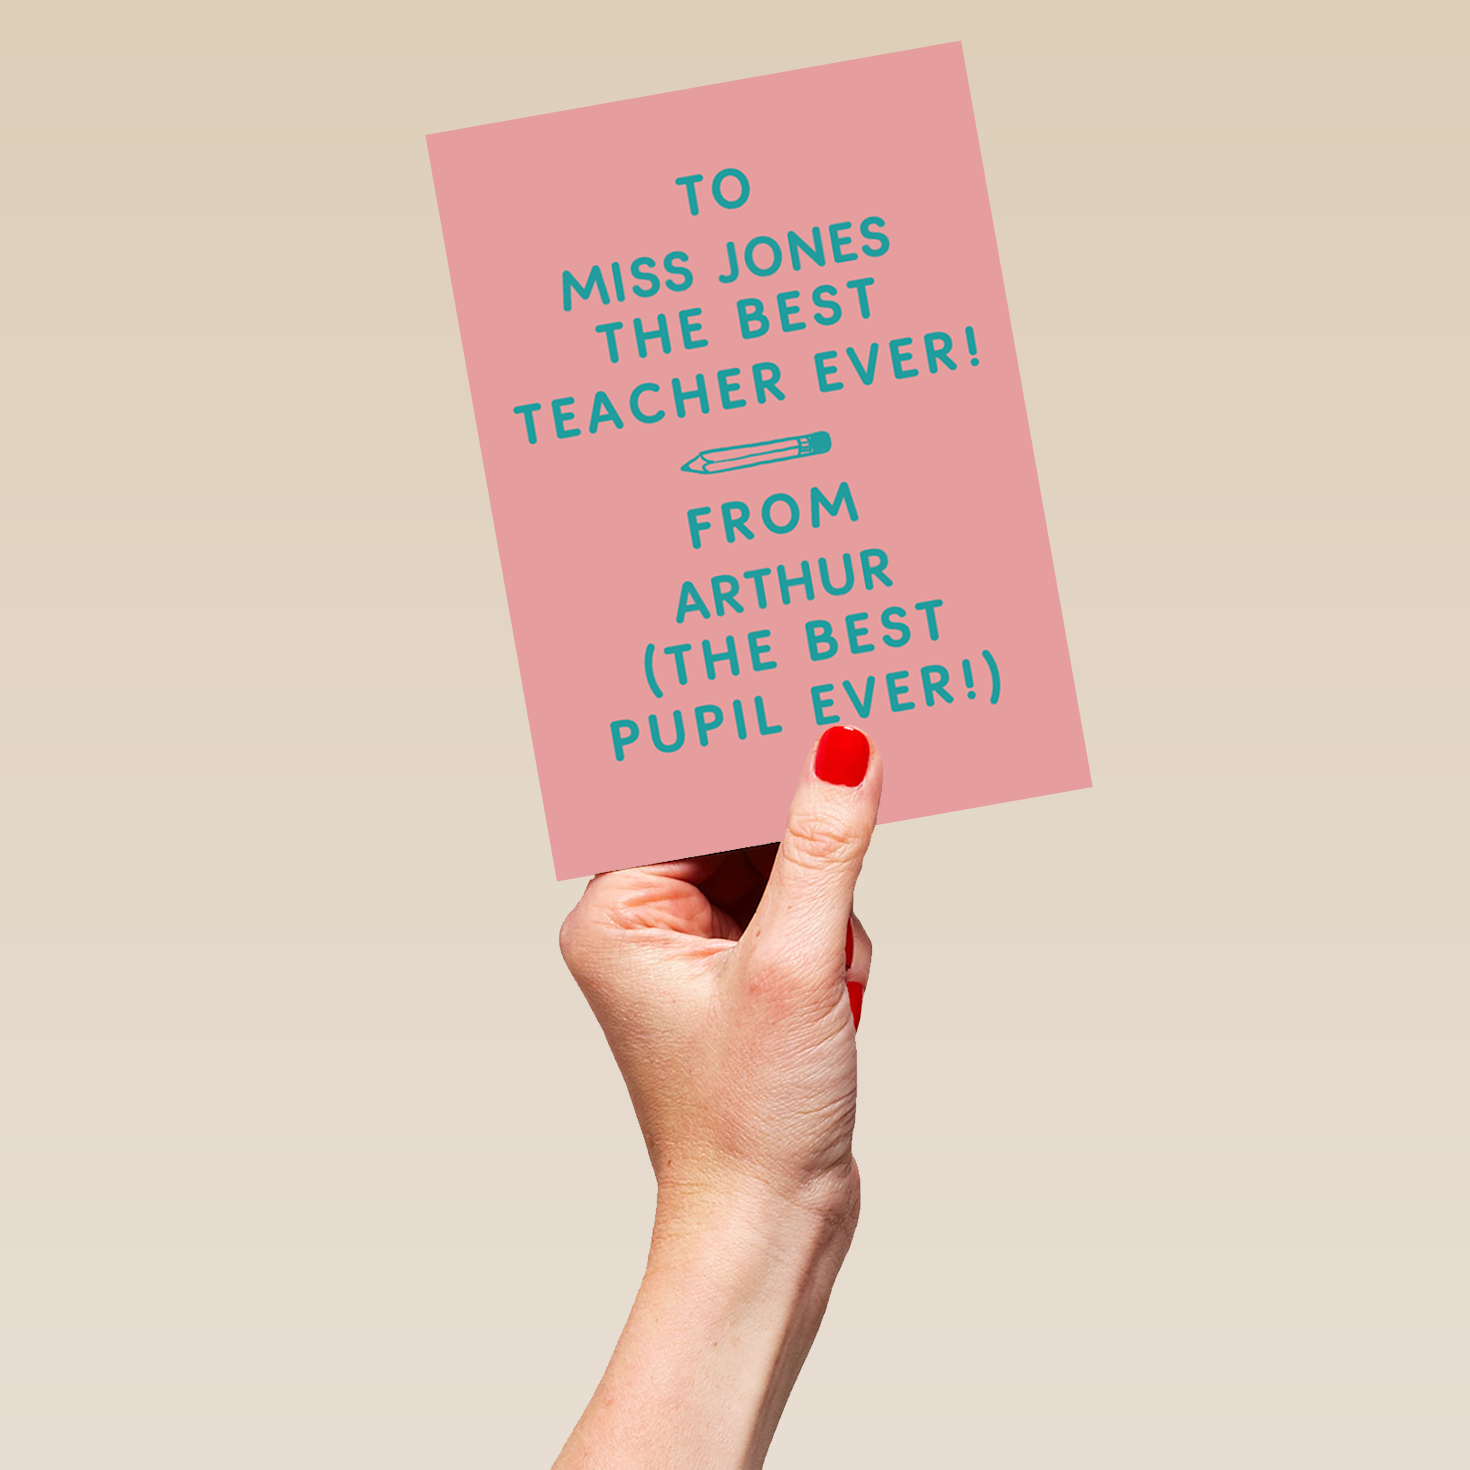 TO
MISS JONES
THE BEST
TEACHER EVER!
FROM
ARTHUR
(THE BEST
PUPIL EVER!)